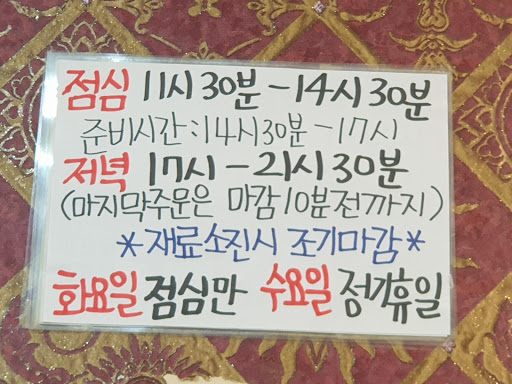 점심 11시 30분 - 14시 30분
준비시간 : 14시30분 - 17시
저녁 17시 - 21시 30분
(마지막주문은 마감 10분전까지)
*재료소진시 조기마감*
화요일 점심만 수요일 정기휴일